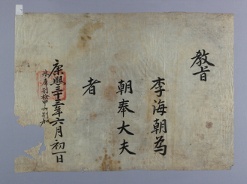 教旨
李海朝爲
朝奉大夫
者
康熙三十五年六月初一日